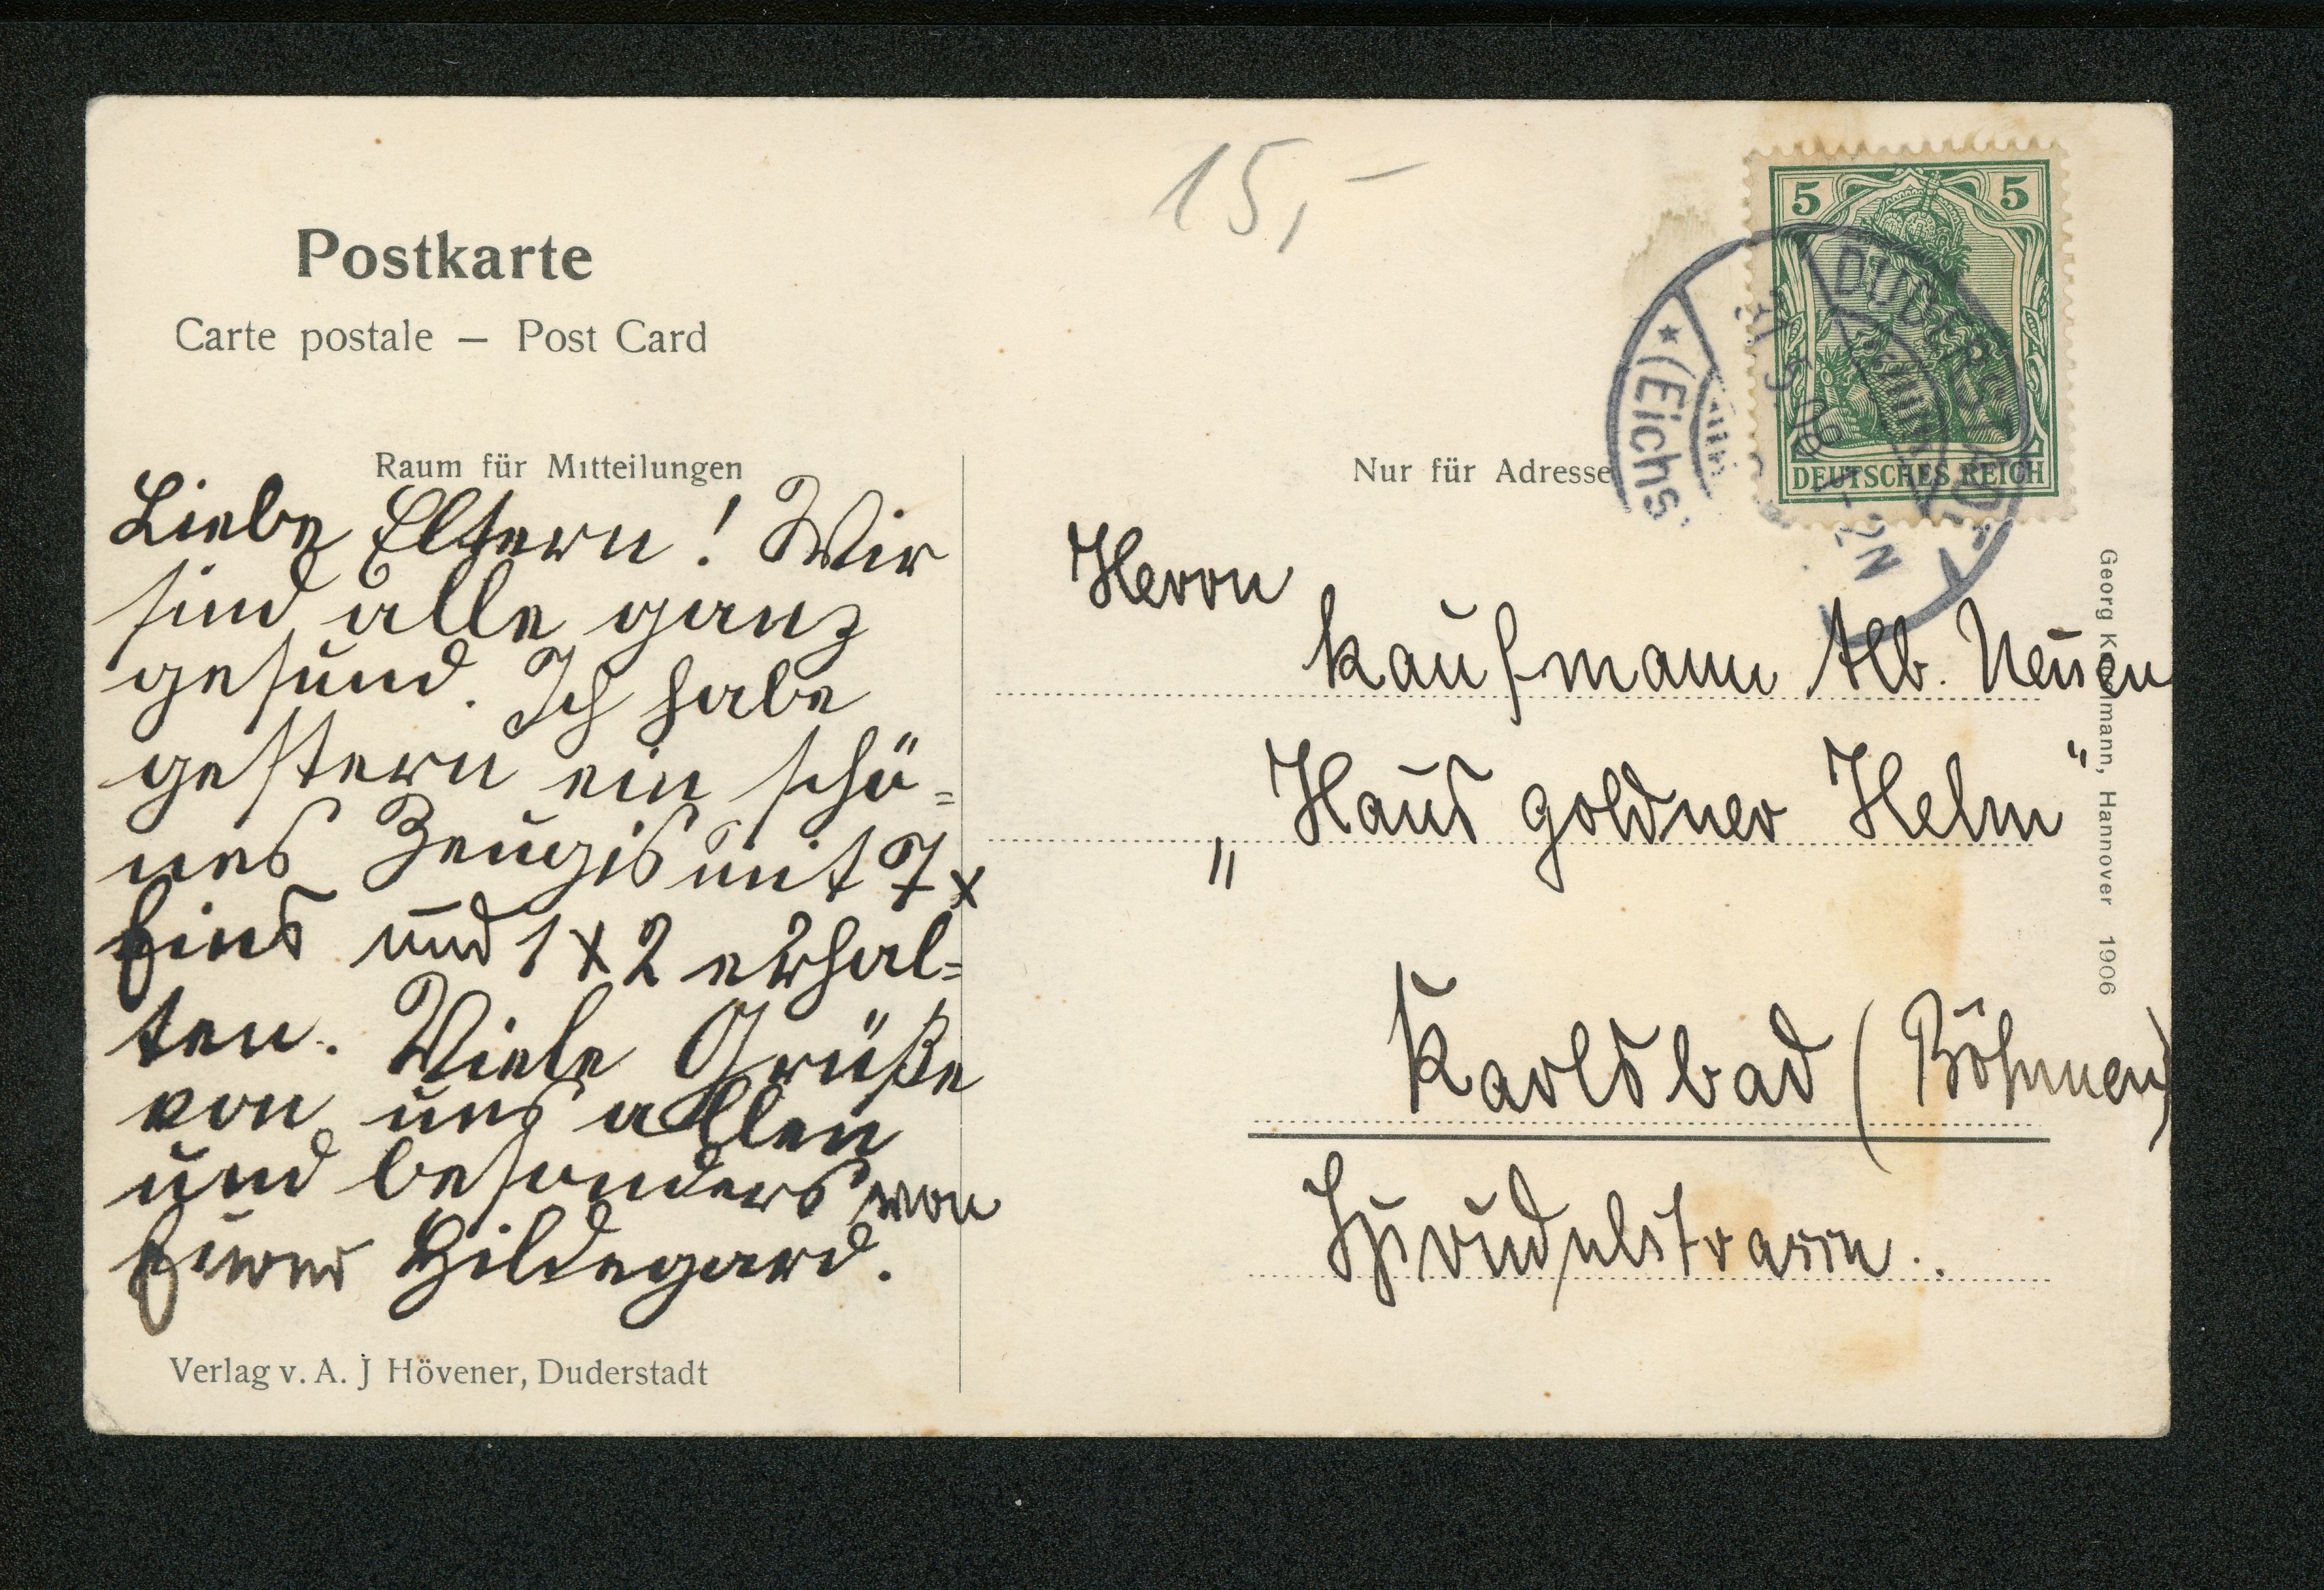 15,–
Postkarte
Carte postale – Post Card
Raum für Mitteilungen
Liebe Eltern! Wir
sind alle ganz
gesund. Ich habe
gestern ein schö=
nes Zeugis mit 7x
Eins und 1x2 erhal=
ten. Viele Grüße
von uns allen
und besonders von
Eurer Hildegard.
Verlag v. A. J Hövener, Duderstadt
5 5
DEUTSCHES REICH
DUDERSTADT
* (Eichs
1-2N
Nur für Adresse
Herrn
Kaufmann Alb.
„Haus goldner Helm"
Karlsbad (Böhmen)
Georg mann, Hannover 1906